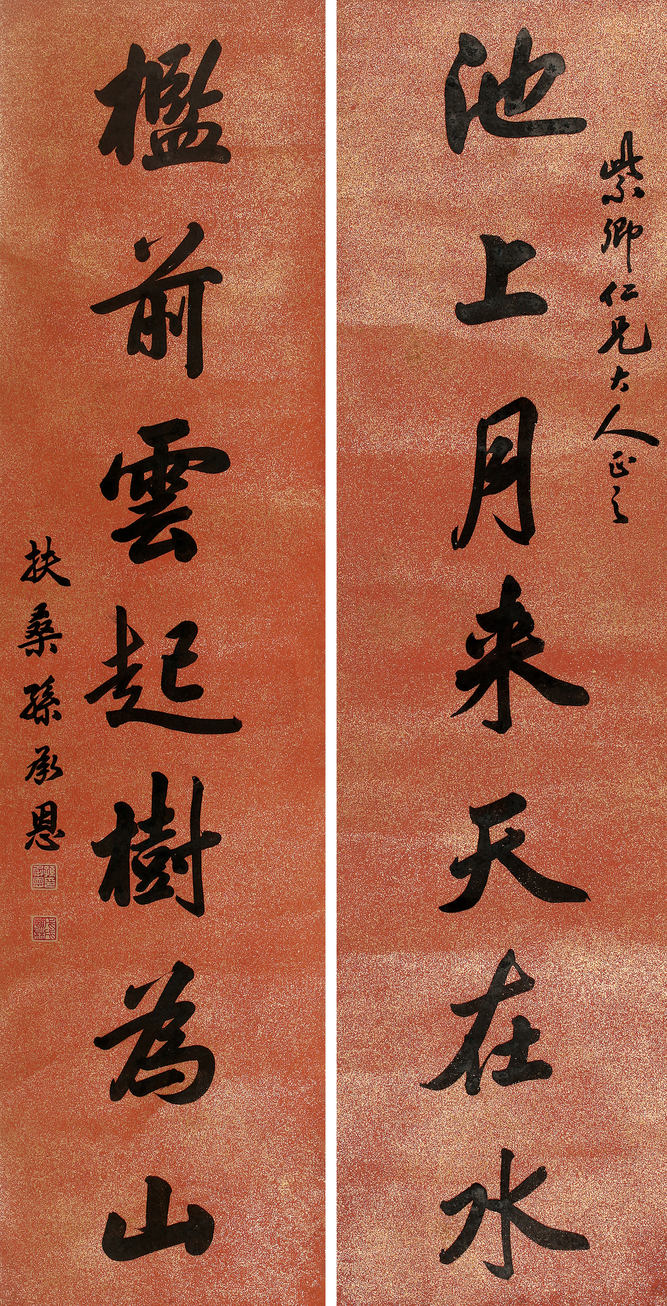 紫卿仁兄大人正之
池上月来天在水
檻前雲起樹為山
扶桑孫承恩